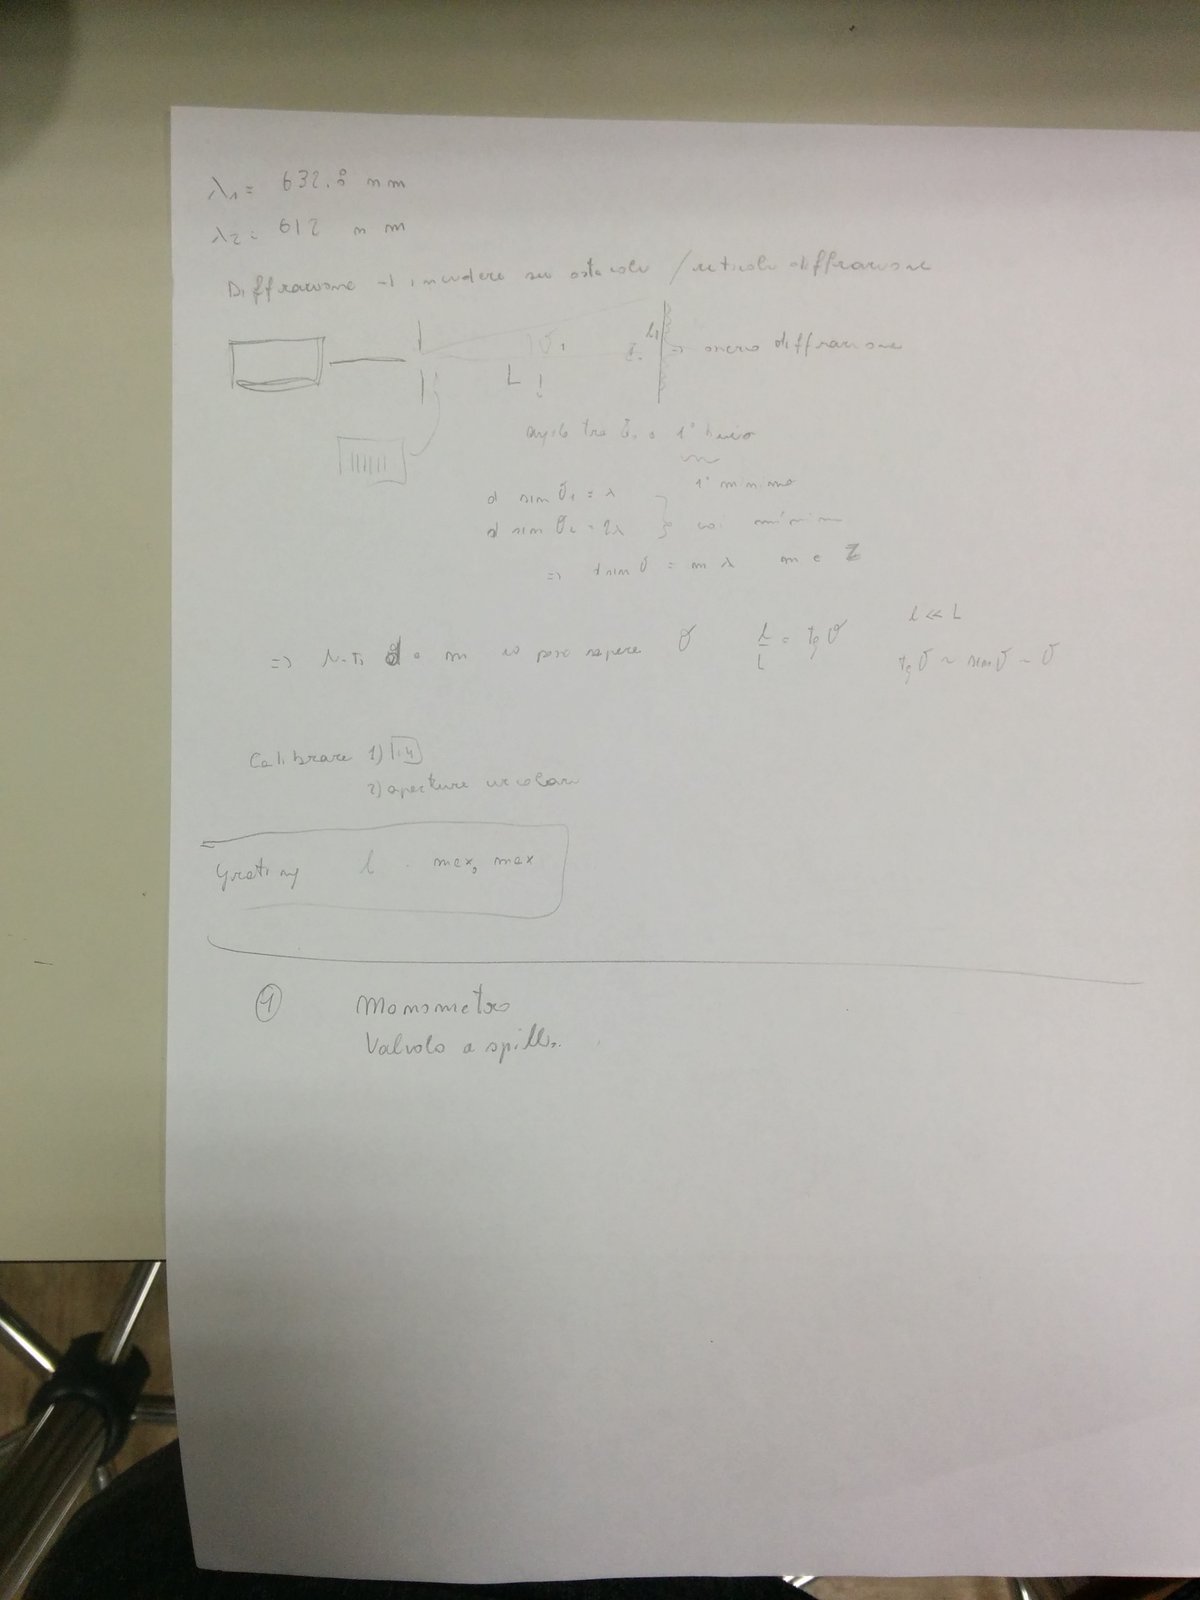 λ₁ = 632.8 nm
λ₂ = 612 nm
Diffrazione → incidere su ostacolo / reticolo diffrazione
l₁
θ₁
⇒ diffrazione
L
angolo tra 1° buio
1° minimo
d sin θ₁ = λ
d sin θ₂ = 2λ minimi
⇒ d sin θ = m λ m ∈ Z
l << L
⇒ Noti d e m io posso sapere θ l/L = tg θ
tg θ ~ sin θ ~ θ
Calibrare 1)
2) aperture circolari
Grating l max, max
1 Manometro
Valvola a spillo.